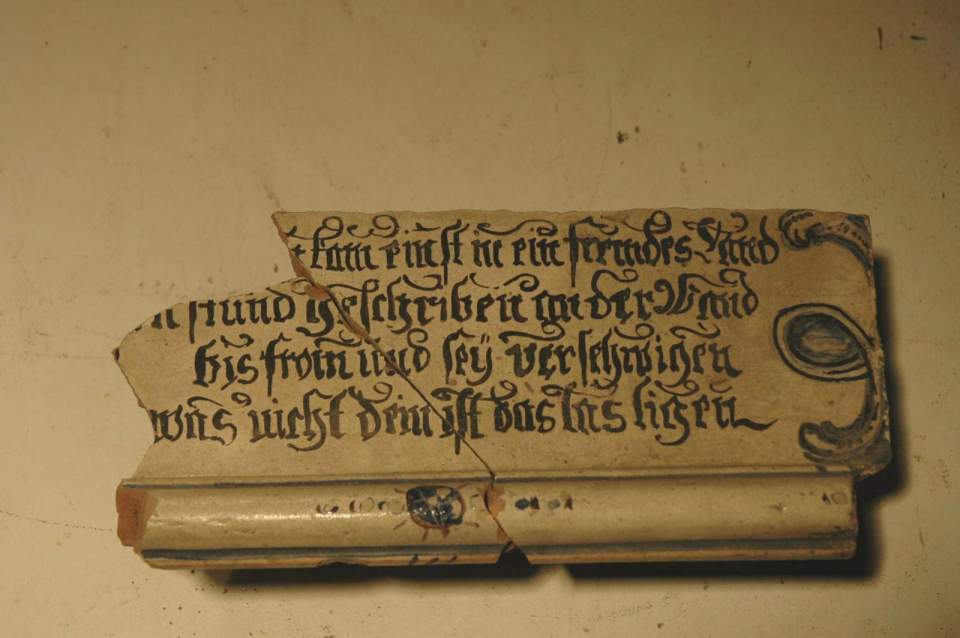 kam einst in ein fremdes Land
stund geschriben an der Wand
bis from und seÿ verschwigen
was nicht dein ist das las ligen